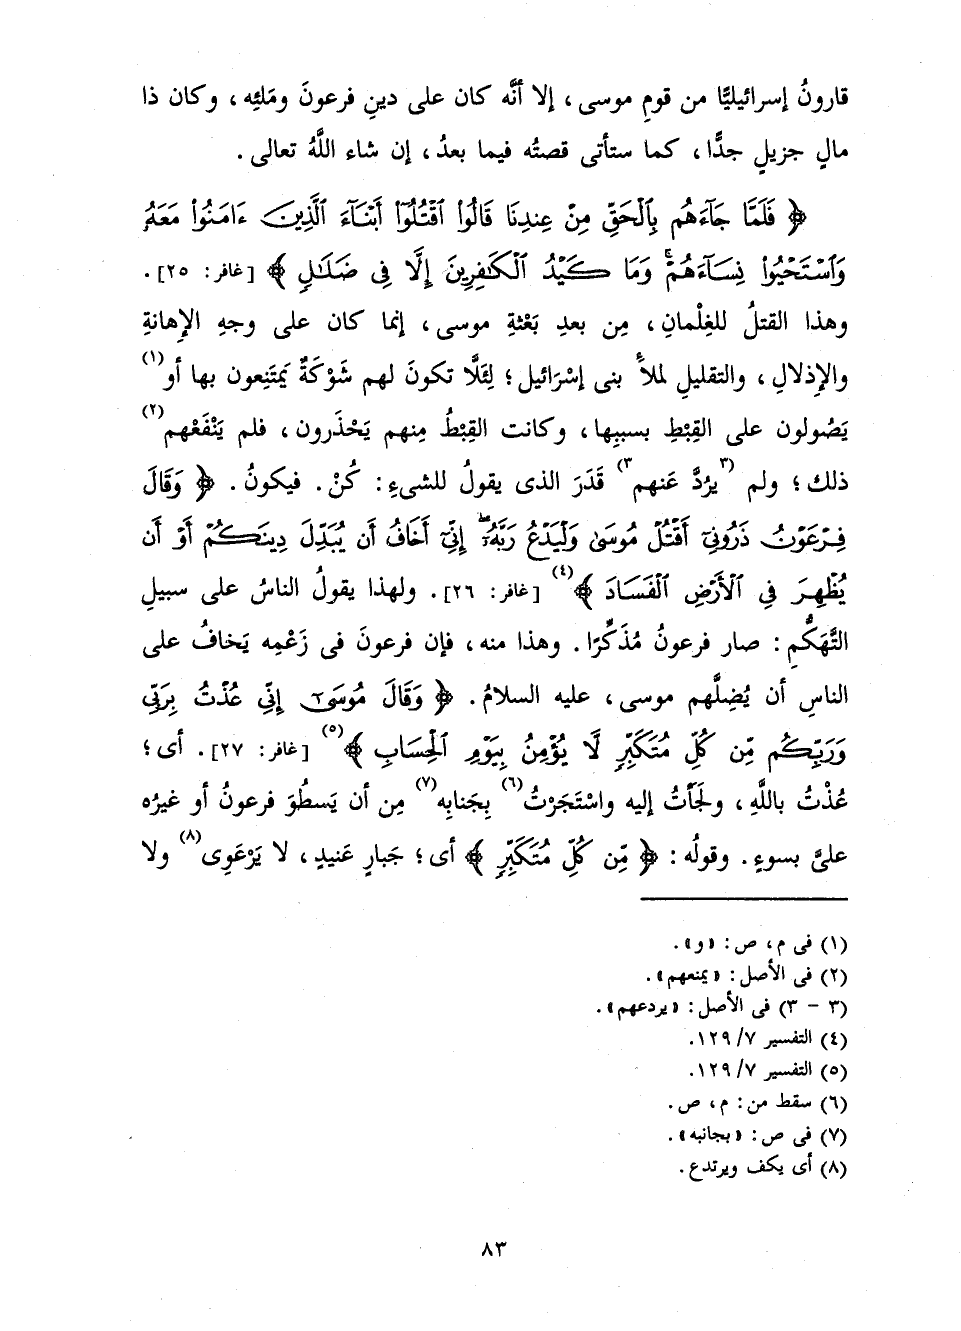 قارونُ إسرائيليًّا من قومِ موسى، إلا أنَّه كان على دينِ فرعونَ ومَلَئِه، وكان ذا
مالٍ جزيلٍ جدًّا، كما ستأتى قصتُه فيما بعدُ، إن شاء اللَّهُ تعالى.
﴿ فَلَمَّا جَآءَهُم بِٱلْحَقِّ مِنْ عِندِنَا قَالُوا۟ ٱقْتُلُوٓا۟ أَبْنَآءَ ٱلَّذِينَ ءَامَنُوا۟ مَعَهُۥ
وَٱسْتَحْيُوا۟ نِسَآءَهُمْ ۚ وَمَا كَيْدُ ٱلْكَٰفِرِينَ إِلَّا فِى ضَلَٰلٍ ﴾ [غافر: ٢٥].
وهذا القتلُ للغِلْمانِ، مِن بعدِ بَعْثةِ موسى، إنما كان على وجهِ الإِهانةِ
والإِذلالِ، والتقليلِ لملأِ بنى إسْرَائيل؛ لِئَلَّا تكونَ لهم شَوْكَةٌ يَمتَنِعون بها أو(١)
يَصُولون على القِبْطِ بسببِها، وكانت القِبْطُ مِنهم يَحْذَرون، فلم يَنْفَعْهم(٢)
ذلك؛ ولم (٣يرُدَّ عَنهم٣) قَدَرَ الذى يقولُ للشىءِ: كُنْ. فيكونُ. ﴿ وَقَالَ
فِرْعَوْنُ ذَرُونِىٓ أَقْتُلْ مُوسَىٰ وَلْيَدْعُ رَبَّهُۥٓ ۖ إِنِّىٓ أَخَافُ أَن يُبَدِّلَ دِينَكُمْ أَوْ أَن
يُظْهِرَ فِى ٱلْأَرْضِ ٱلْفَسَادَ ﴾(٤) [غافر: ٢٦]. ولهذا يقولُ الناسُ على سبيلِ
التَّهَكُّمِ: صار فرعونُ مُذَكِّرًا. وهذا منه، فإن فرعونَ فى زَعْمِه يَخافُ على
الناسِ أن يُضِلَّهم موسى، عليه السلامُ. ﴿ وَقَالَ مُوسَىٰٓ إِنِّى عُذْتُ بِرَبِّى
وَرَبِّكُم مِّن كُلِّ مُتَكَبِّرٍ لَّا يُؤْمِنُ بِيَوْمِ ٱلْحِسَابِ ﴾(٥) [غافر: ٢٧]. أى؛
عُذْتُ باللَّهِ، ولَجَأْتُ إليه واسْتَجَرْتُ(٦) بِجَنابِه(٧) مِن أن يَسطُوَ فرعونُ أو غيرُه
علىَّ بسوءٍ. وقولُه: ﴿ مِّن كُلِّ مُتَكَبِّرٍ ﴾ أى؛ جَبارٍ عَنيدٍ، لا يَرْعَوِى(٨) ولا
(١) فى م، ص: «و».
(٢) فى الأصل: «يمنعهم».
(٣ - ٣) فى الأصل: «يردعهم».
(٤) التفسير ٧/ ١٢٩.
(٥) التفسير ٧/ ١٢٩.
(٦) سقط من: م، ص.
(٧) فى ص: «بجانبه».
(٨) أى يكف ويرتدع.
٨٣